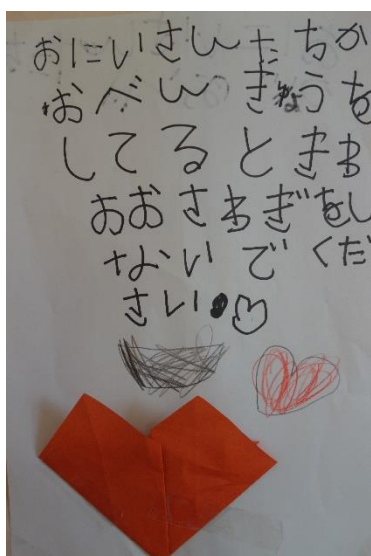 おにいさんたちか
おべんぎゅうを
してるときわ
おおさわぎをし
ないでくだ
さい。